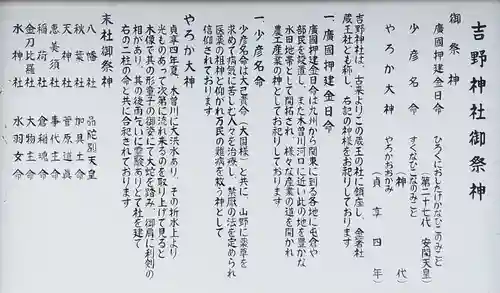 吉野神社御祭神
御祭神
廣國押建金日命 ひろくにおしたけかなひこのみこと
(第二十七代 安閑天皇)
少彦名命 すくなひこなのみこと
(神代)
やろか大神 やろかおおかみ
(貞享四年)
吉野神社は、古来よりこの蔵王の社に鎮座し、金峯社
蔵王社とも称し、右記の神様をお祀りしております
一 廣國押建金日命
廣國押建金日命は九州から関東に到る各地に屯倉や
部民を設置し、また木曽川河口に近い此の地を豊かな
水田地帯として開拓され、様々な産業の道を開かれ
農工産業の神としてお祀りしております
一 少彦名命
少彦名命は大己貴命(大国様)と共に、山野に薬草を
求めて病気に苦しむ人々を治療し、禁厭の法を定められ
医薬の祖神と仰がれ万民の難病を救う神として
信仰されております
やろか大神
貞享四年夏、木曽川に大洪水あり、その折水上より
光ものあって次第に流れ来るのを取り上げて見ると
木像で其の形童子の御姿にて大蛇を踏み、御肩に利剣の
相があり、其の後雨乞いに霊験ありとて社を建て
右の二柱の命と共に合祀されております
末社御祭神
八幡社 品陀別天皇
秋葉社 加具土命
天神社 菅原道真
恵美須社 事代主命
稲荷社 倉稲魂命
金刀比羅社 大物主命
水神社 水羽女命